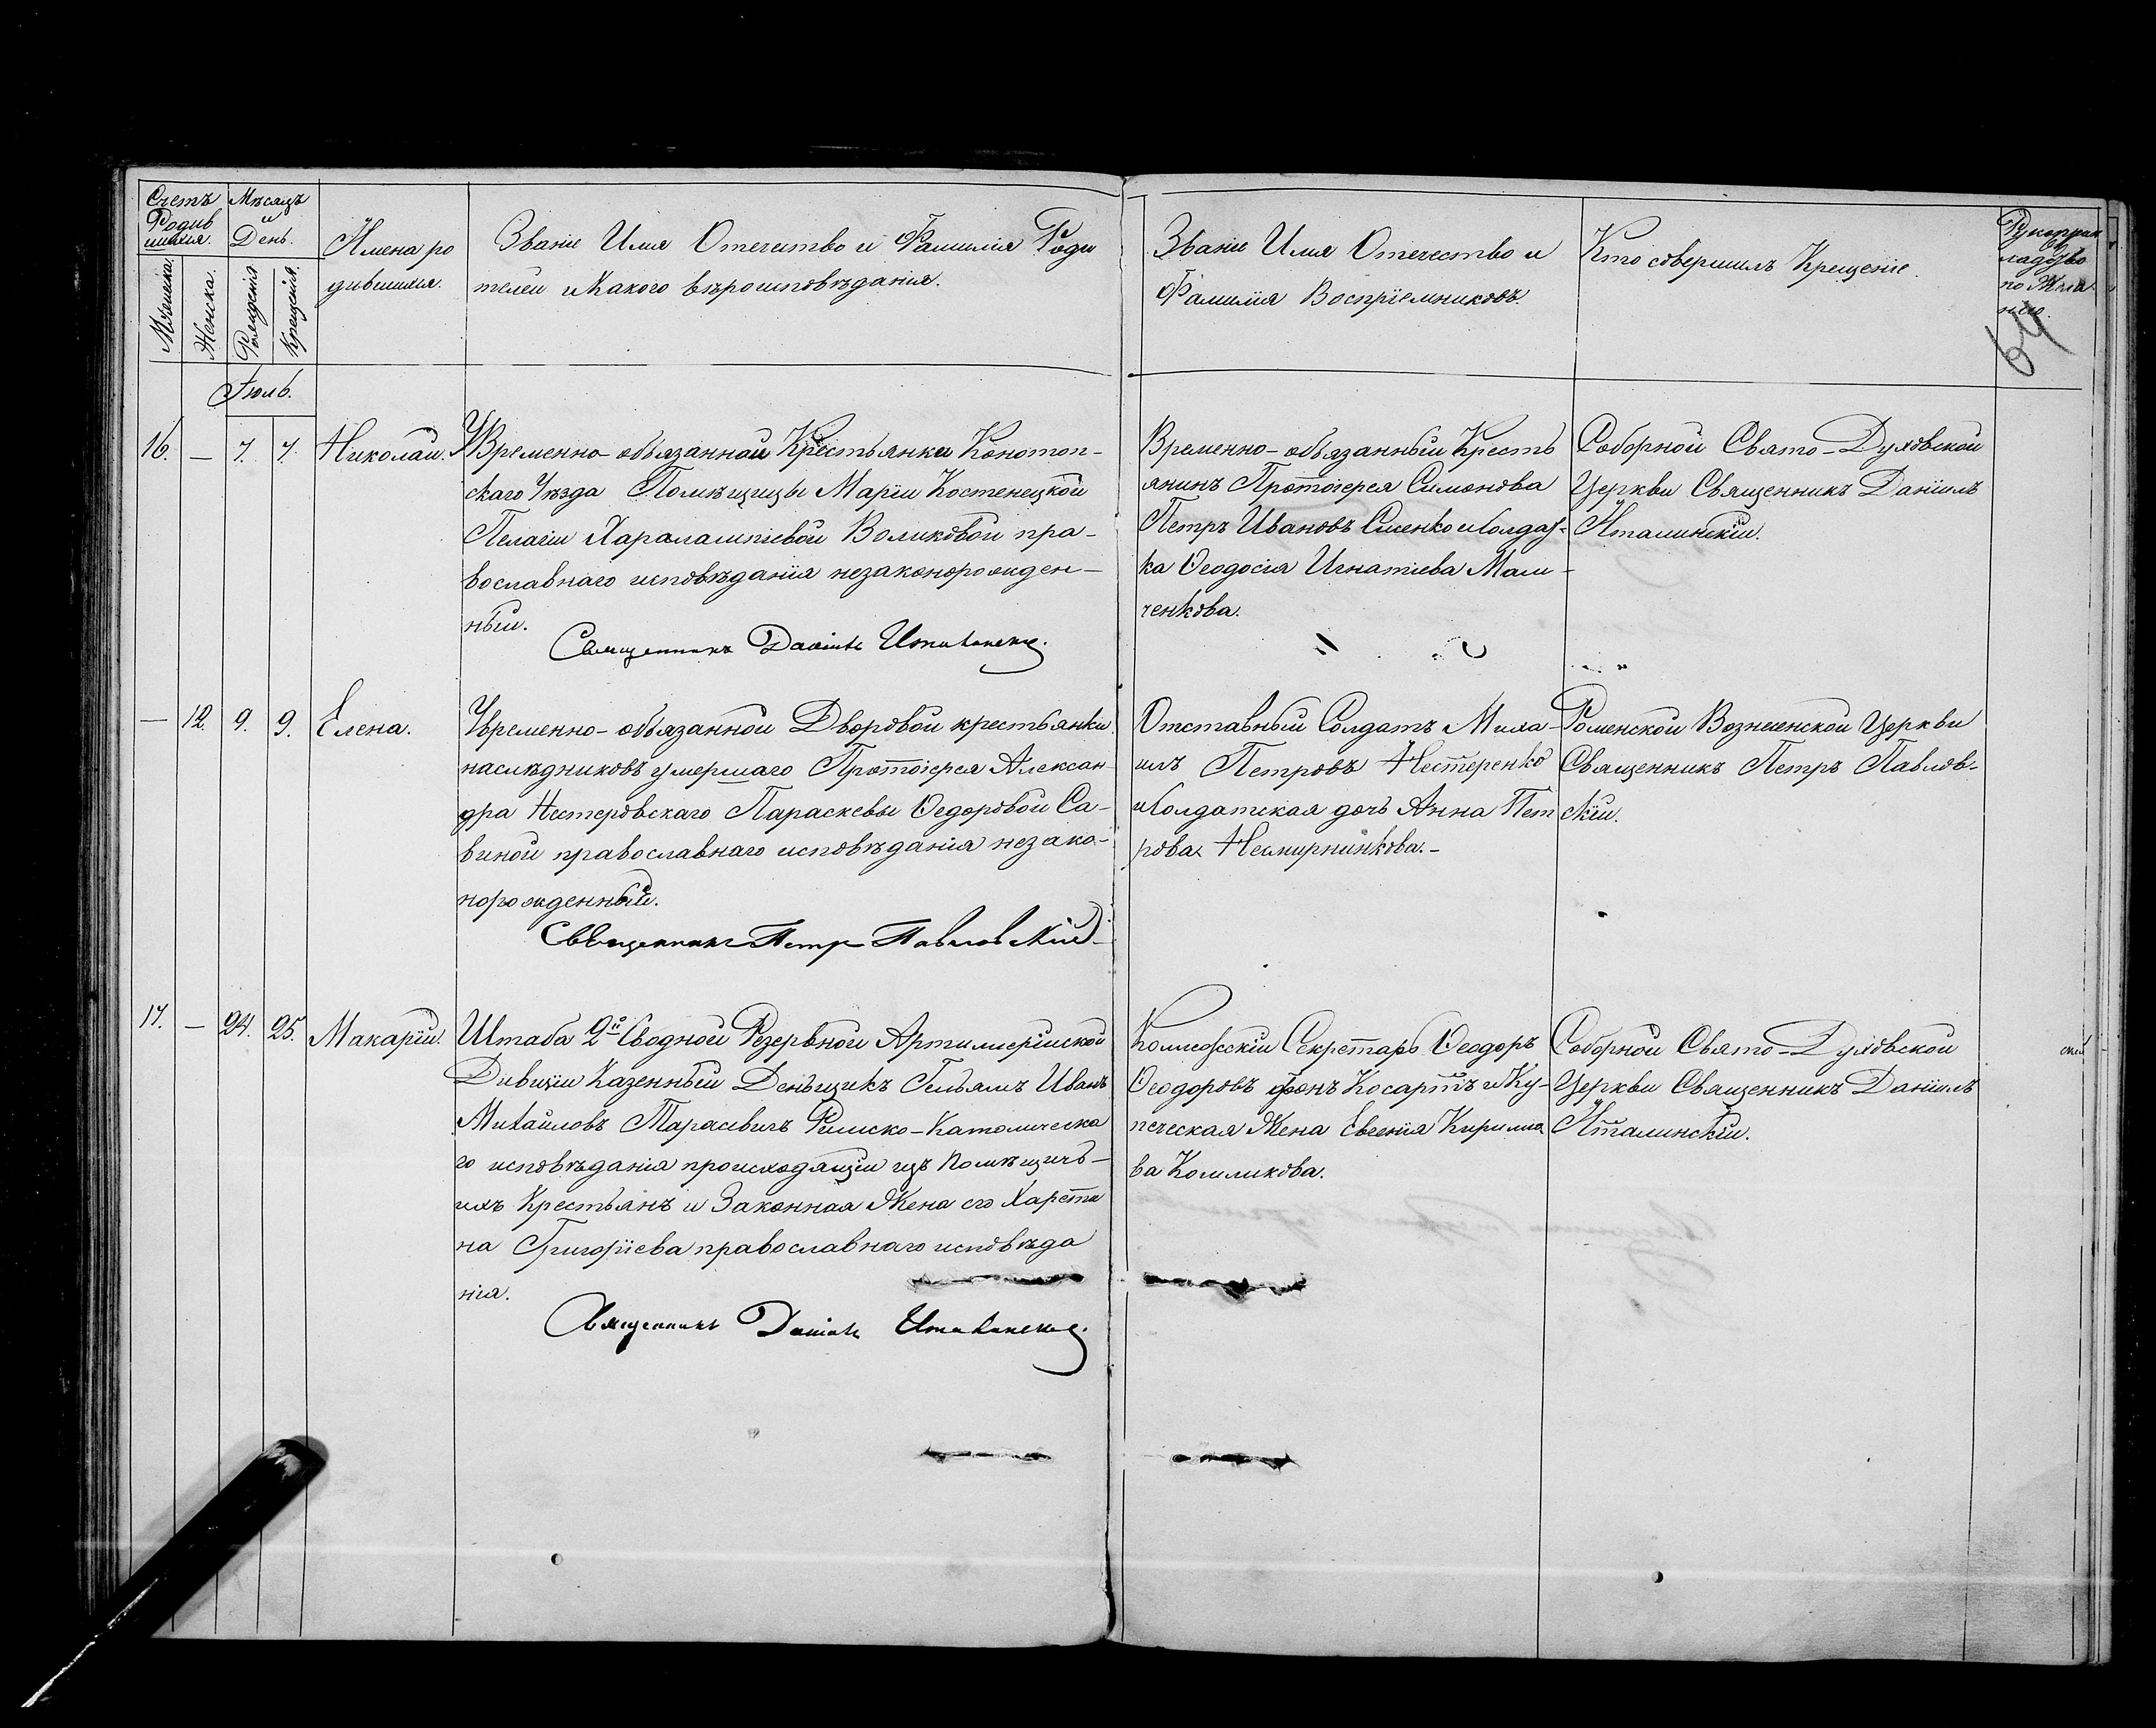 Счетъ
Родив
шихся.
Мѣсяцъ
и
День.
Мужеска.
Женска.
Рожденія
Крещенія.
Имена ро
дившихся.
Званіе Имя Отечество и Фамилія Роди
телей и Какого вѣроисповѣданія.
Званіе Имя Отечество и
Фамилія Воспріемниковъ.
Кто совершилъ Крещеніе.
по
64
Іюль.
16. — 7. 7. Николай.
УВременно-обязанной Крестьянки Конотоп-
скаго Уѣзда Помѣщицы Маріи Костенецкой
Пелагіи Харалампіевой Воликовой пра-
вославнаго исповѣданія незаконорожден-
ный.
Священникъ Даніилъ
Временно-обязанный Кресть
янинъ Протоіерея Симонова
Петръ Ивановъ и Солдат-
ка Ѳеодосія Игнатіева Мам-
ченкова.
Соборной Свято-Духовской
Церкви Священникъ Даніилъ
Италинскій.
— 12. 9. 9. Елена.
Увременно-обязанной Дворовой крестьянки
наслѣдниковъ умершаго Протоіерея Алексан
дра Нестеровскаго Параскевы Ѳедоровой Са-
виной православнаго исповѣданія незако-
норожденный.
Священникъ Петръ Павловскій
Отставный Солдатъ Миха-
илъ Петровъ Нестеренко
и Солдатская дочь Анна Пет
рова
Роменской Вознесенской Церкви
Священникъ Петръ Павлов-
скій.
17. — 24. 25. Макарій.
Штаба 2й Сводной Резервной Артиллерійской
Дивизіи Казенный Деньщикъ Гельямъ Иванъ
Михайловъ Тарасевичъ Римско-Католическа
го исповѣданія происходящій изъ Помѣщичь-
ихъ Крестьянъ и Законная Жена его Харети
на Григоріева православнаго исповѣда
нія.
Священникъ Даніилъ
Коллежскій Секретарь Ѳеодоръ
Ѳеодоровъ фонъ Косартъ и Ку-
печеская Жена Евгенія Кирилло
ва Комликова.
Соборной Свято-Духовской
Церкви Священникъ Даніилъ
Италинскій.